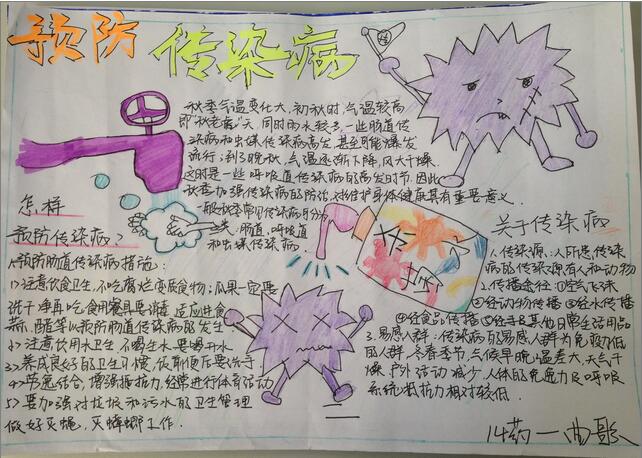 预防
传染病
秋季气温变化大,初秋时,气温较高
即"秋老虎"天,同时雨水较多,一些肠道传
染病和虫媒传染病高发,甚至可能爆发
流行;到了晚秋,气温逐渐下降,风大干燥.
这时是一些呼吸道传染病的高发时节.因此
秋季加强传染病的防治,对维护身体健康具有重要意义.
一般秋季常见传染病可分为
肠道、呼吸道
和虫媒传染病.
怎样
预防传染病?
预防肠道传染病措施:
1>注意饮食卫生,不吃腐烂变质食物;瓜果一定要
洗干净再吃,食用餐具要消毒,适应进食
蒜、醋等以预防肠道传染病的发生
2>注意饮用水卫生,不喝生水,要喝开水
3>养成良好的卫生习惯,饭前便后要洗手
4>劳逸结合,增强抵抗力,经常进行体育活动
5>要加强对垃圾和污水的卫生管理
做好灭蝇,灭蟑螂工作.
关于传染病
1.传染源:人所患传染
病的传染源有人和动物
2.传播途径:①空气飞沫
②经动物传播 ③经水传播
④经食品传播 ⑤经手及其他日常生活用品
3.易感人群:传染病的易感人群为免疫力低
的人群,冬春季节,气候早晚温差大,天气干
燥,户外活动减少,人体的免疫力及呼吸
系统抵抗力相对较低.
14药一 曲歌